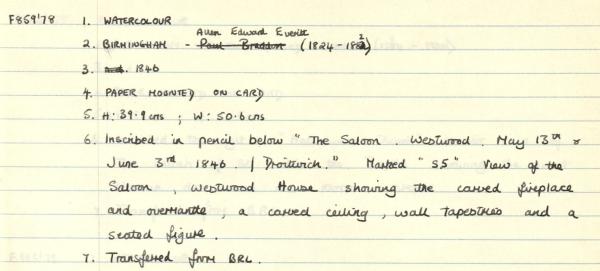 F859'78 1. WATERCOLOUR
Allen Edward Everitt
2. BIRMINGHAM - Paul Braddon (1824-1882)
3. 1846
4. PAPER MOUNTED ON CARD
5. H: 39.9 cms ; W: 50.6 cms
6. Inscribed in pencil below " The Saloon . Westwood . May 13th &
June 3rd 1846 . / Droitwich." Marked "55" View of the
Saloon , Westwood House showing the carved fireplace
and overmantle , a carved ceiling , wall tapestries and a
seated figure .
7. Transferred from BRL .